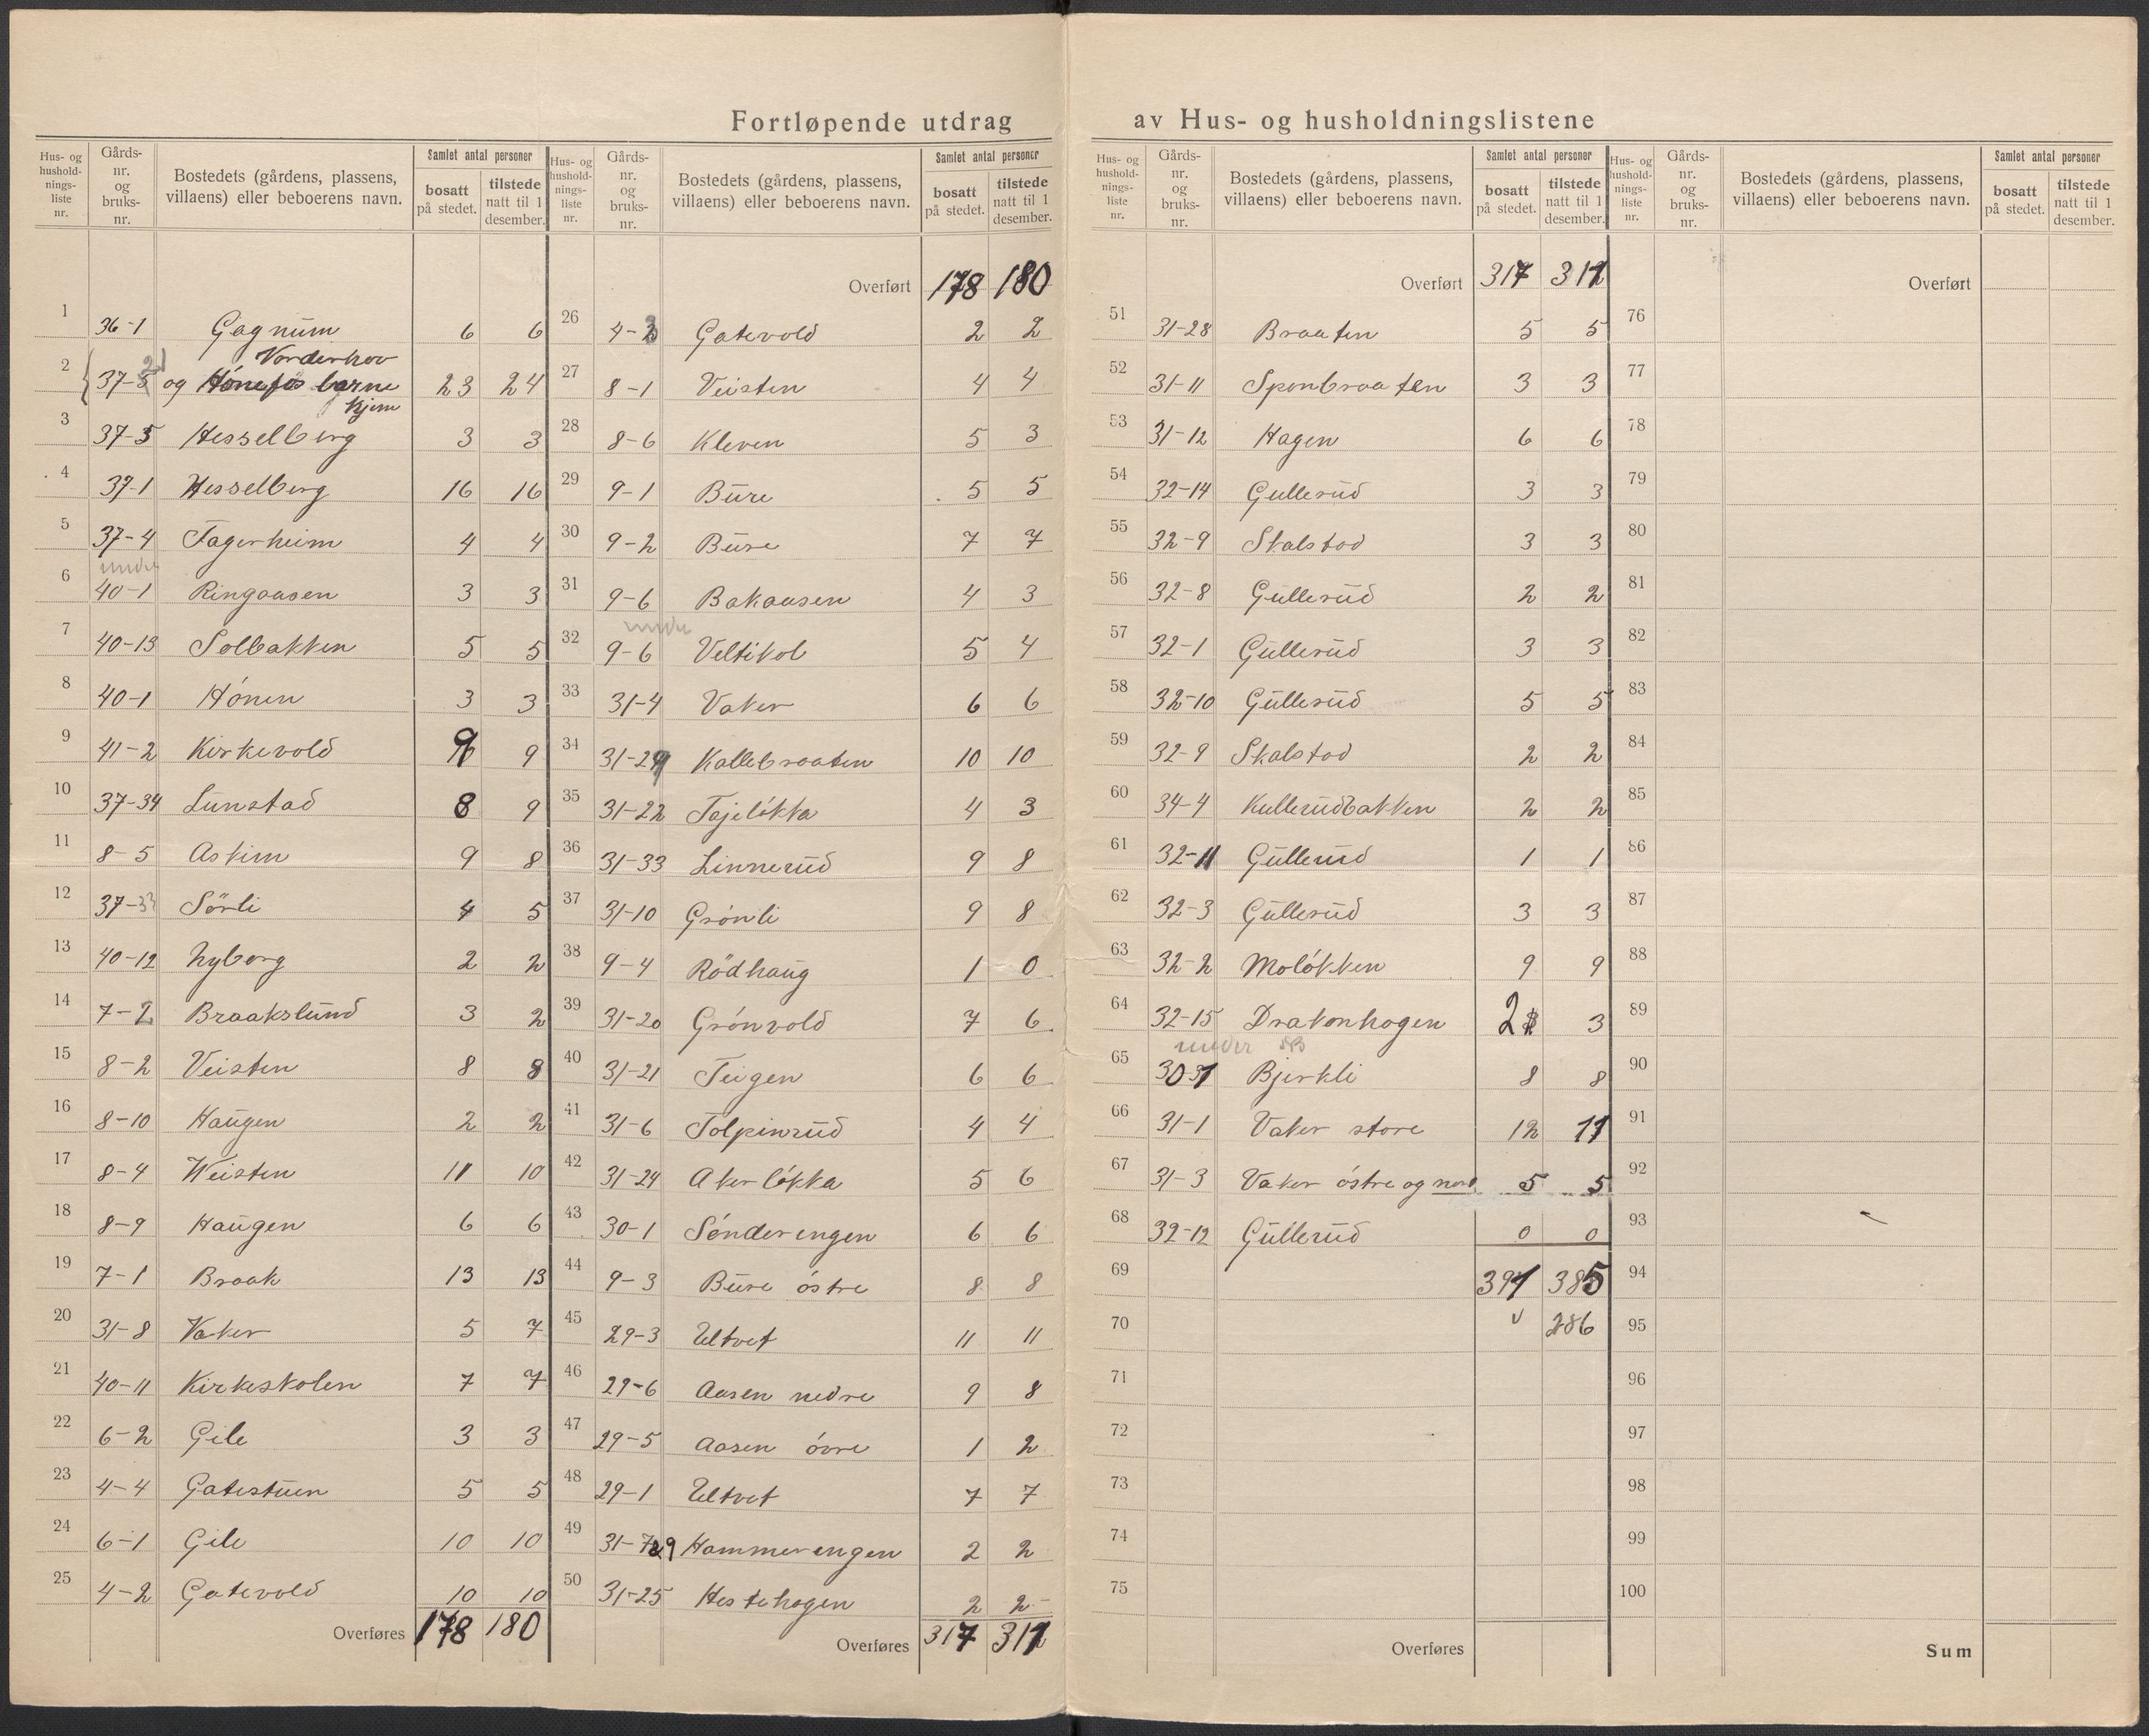 Fortløpende utdrag av Hus- og husholdningslistene
Hus- og husholdnings- liste nr. | Gårds- nr. og bruks- nr. | Bostedets (gårdens, plassens, villaens) eller beboerens navn. | Samlet antal personer | bosatt på stedet. | tilstede natt til 1 desember.
1 36-1 Gagnum 6 6
2 37-5 21 og Hönefos Vorderhov barne hjem 23 24
3 37-5 Hesselberg 3 3
4 37-1 Hesselberg 16 16
5 37-4 Fagerheim 4 4
6 under 40-1 Ringaasen 3 3
7 40-13 Solbakken 5 5
8 40-1 Hönen 3 3
9 41-2 Kirkevold 9 9
10 37-34 Lunstad 8 9
11 8-5 Askim 9 8
12 37-33 Sörli 4 5
13 40-12 Nyborg 2 2
14 7-2 Braakslund 3 2
15 8-2 Veisten 8 8
16 8-10 Haugen 2 2
17 8-4 Weisten 11 10
18 8-9 Haugen 6 6
19 7-1 Braak 13 13
20 31-8 Vaker 5 7
21 40-11 Kirkeskolen 7 7
22 6-2 Gile 3 3
23 4-4 Gatestuen 5 5
24 6-1 Gile 10 10
25 4-2 Gatevold 10 10
Overføres 178 180
Hus- og hushold- nings- liste nr. | Gårds- nr. og bruks- nr. | Bostedets (gårdens, plassens, villaens) eller beboerens navn. | Samlet antal personer | bosatt på stedet. | tilstede natt til 1 desember.
Overført 178 180
26 4-3 Gatevold 2 2
27 8-1 Veisten 4 4
28 8-6 Kleven 5 3
29 9-1 Bure 5 5
30 9-2 Bure 7 7
31 9-6 Bakaasen 4 3
32 under 9-6 Veltikol 5 4
33 31-4 Vaker 6 6
34 31-29 Kallebraaten 10 10
35 31-22 Tajelökka 4 3
36 31-33 Linnerud 9 8
37 31-10 Grönli 9 8
38 9-4 Rödhaug 1 0
39 31-20 Grönvold 7 6
40 31-21 Teigen 6 6
41 31-6 Tolpinrud 4 4
42 31-24 Akerlökka 5 6
43 30-1 Sönderengen 6 6
44 9-3 Bure östre 8 8
45 29-3 Ultvet 11 11
46 29-6 Aasen nedre 9 8
47 29-5 Aasen övre 1 2
48 29-1 Ultvet 7 7
49 31-729 Hammerengen 2 2
50 31-25 Hestehagen 2 2
Overføres 317 311
Hus- og hushold- nings- liste nr. | Gårds- nr. og bruks- nr. | Bostedets (gårdens, plassens, villaens) eller beboerens navn. | Samlet antal personer | bosatt på stedet. | tilstede natt til 1 desember.
Overført 317 311
51 31-28 Braaten 5 5
52 31-11 Sponbraaten 3 3
53 31-12 Hagen 6 6
54 32-14 Gullerud 3 3
55 32-9 Skalstad 3 3
56 32-8 Gullerud 2 2
57 32-1 Gullerud 3 3
58 32-10 Gullerud 5 5
59 32-9 Skalstad 2 2
60 34-4 Kullerudbakken 2 2
61 32-11 Gullerud 1 1
62 32-3 Gullerud 3 3
63 32-2 Molökken 9 9
64 32-15 Drakonhagen 2 3
65 under 30 31 Bjerkli 8 8
66 31-1 Vaker store 12 11
67 31-3 Vaker östre og nord 5 5
68 32-12 Gullerud 0 0
69 391 385
70 286
71
72
73
74
75
Overføres
Hus- og hushold- nings- liste nr. | Gårds- nr. og bruks- nr. | Bostedets (gårdens, plassens, villaens) eller beboerens navn. | Samlet antal personer | bosatt på stedet. | tilstede natt til 1 desember.
Overført
76
77
78
79
80
81
82
83
84
85
86
87
88
89
90
91
92
93
94
95
96
97
98
99
100
Sum